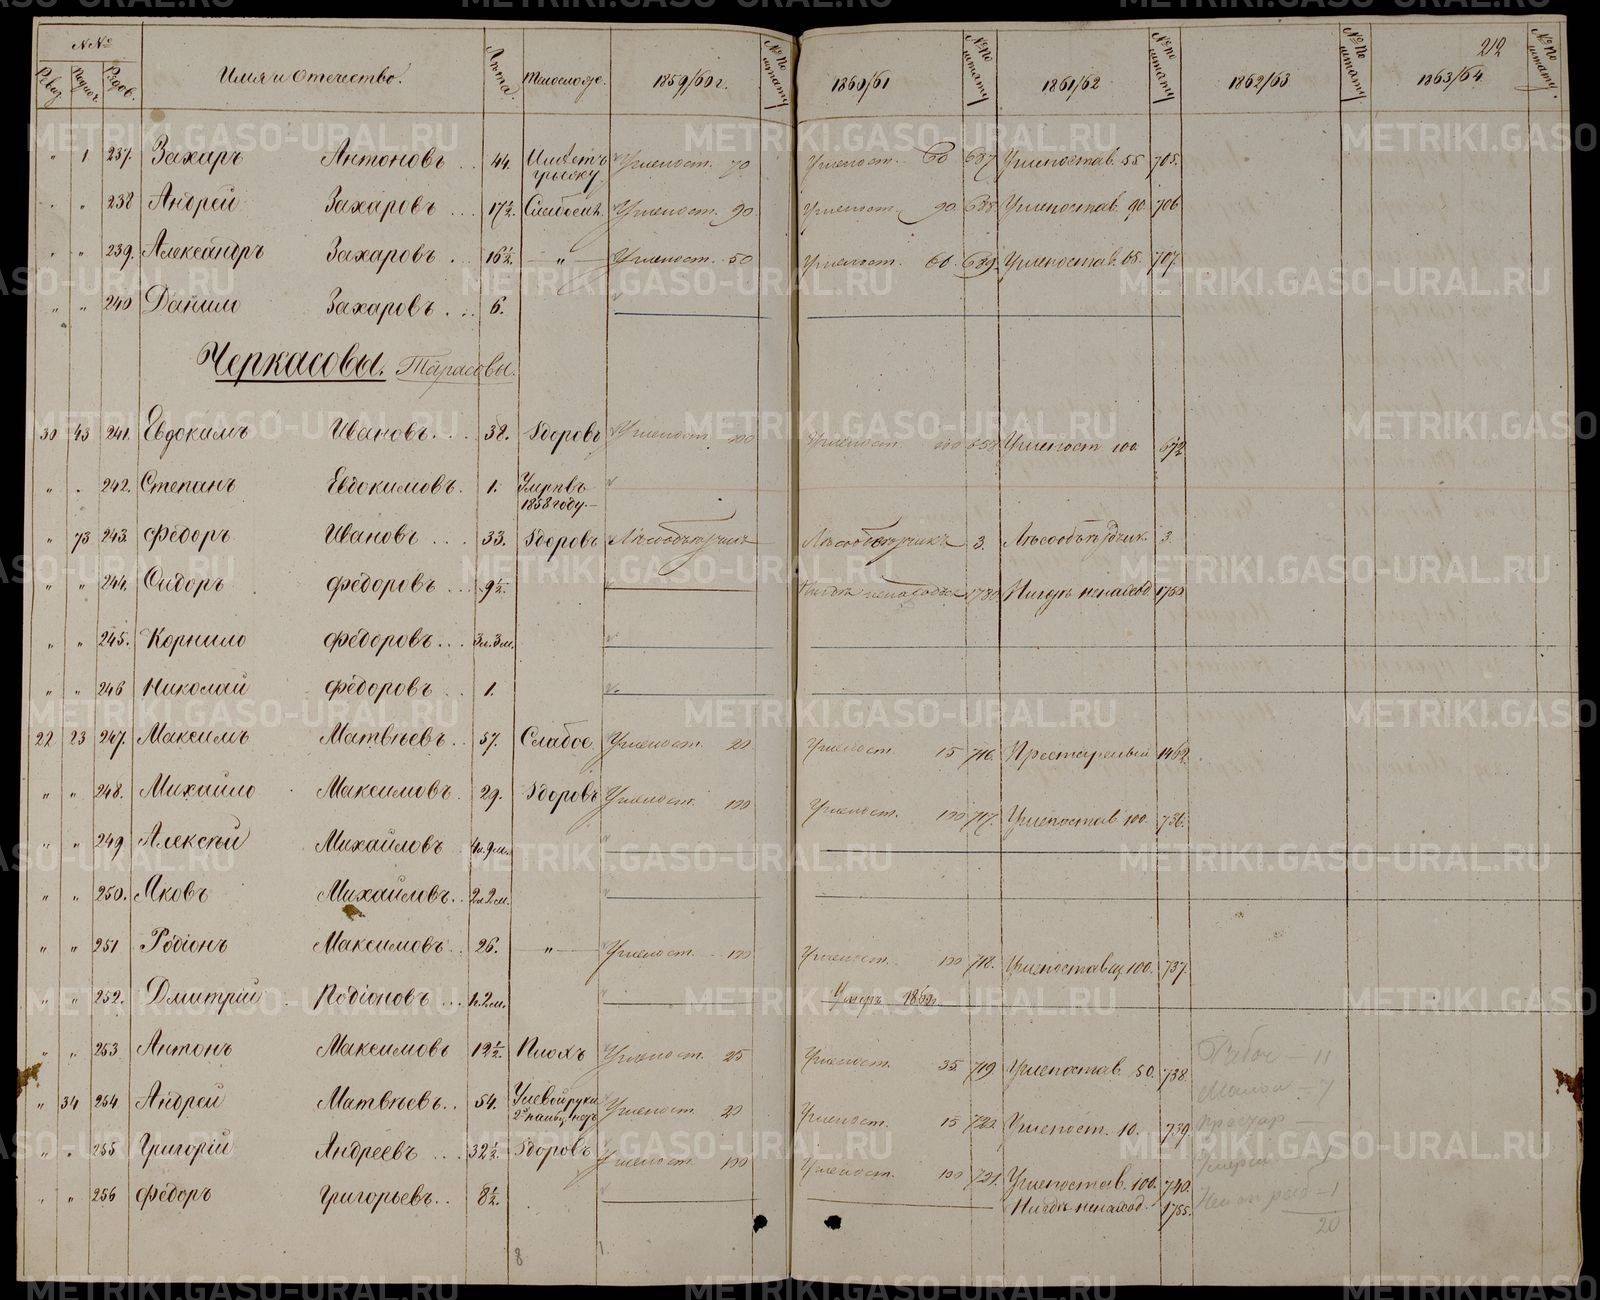 №№
Ревиз. Подвор. Рядов. Имя и Отчество. Лѣта. Тѣлослож. 1859/60 г. №№ по штату 1860/61 №№ по штату 1861/62 №№ по штату 1862/63 №№ по штату 1863/64 №№ по штату. 212
" 1 237. Захаръ Антоновъ .. 44. Имѣетъ грыжу Углепост. 70 Углепост. 60 687 Углепостав. 55 705.
" " 238 Андрей Захаровъ ... 17½. Слабосил. Углепост. 90. Углепост. 90 688. Углепостав. 90 706
" " 239. Александръ Захаровъ . 16½. " Углепост. 50 Углепост. 60. 689. Углепостав. 65. 707.
" " 240 Данило Захаровъ ... 6.
Черкасовы. Тарасовы.
30 43 241. Евдокимъ Ивановъ.... 38. Здоровъ Углепост. 100 Углепост. 100 658 Углепост 100. 672
" . 242. Степанъ Евдокимовъ. 1. Умре въ 1858 году.
" 73 243. Ѳедоръ Ивановъ ... 33. Здоровъ Лѣсообъѣздчикъ Лѣсообъѣздчикъ 3. Лѣсообъѣздчик. 3.
" " 244. Сидоръ Ѳедоровъ ... 9½. Нигдѣ ненаход. 1750
" " 245. Корнило Ѳедоровъ... 3 л. 3 м.
" " 246 Николай Ѳедоровъ .. 1.
22 23 247. Максимъ Матвѣевъ.. 57. Слабое Углепост. 20 Углепост. 15 716. Престарелый 1462.
" " 248. Михайло Максимовъ. 29. Здоровъ Углепост. 100 Углепост. 100 717. Углепостав. 100. 736.
" " 249 Алексѣй Михайловъ 4 л. 9 м.
" " 250. Яковъ Михайловъ. 2 л. 2 м.
" " 251 Родіонъ Максимовъ.. 26. " Углепост. 100 Углепост. 100 718. Углепоставщ. 100. 737.
" " 252. Дмитрій Родіоновъ ... 1 г. 2 м. Умеръ 1860 г.
" " 253. Антонъ Максимовъ 12½. Плохъ Углепост. 25 Углепост. 35. 719 Углепостав. 50. 738.
" 34 254 Андрей Матвѣевъ.. 54. У левой руки 2х пальц. нѣтъ Углепост. 20 Углепост. 15 720. Углепост. 10. 739.
" " 255 Григорій Андреевъ ... 32½. Здоровъ Углепост. 100 Углепост. 100 721. Углепостав. 100. 740.
" " 256 Ѳедоръ Григорьевъ.. 8½. Нигдѣ ненаход. 1755.
20
8
METRIKI.GASO-URAL.RU